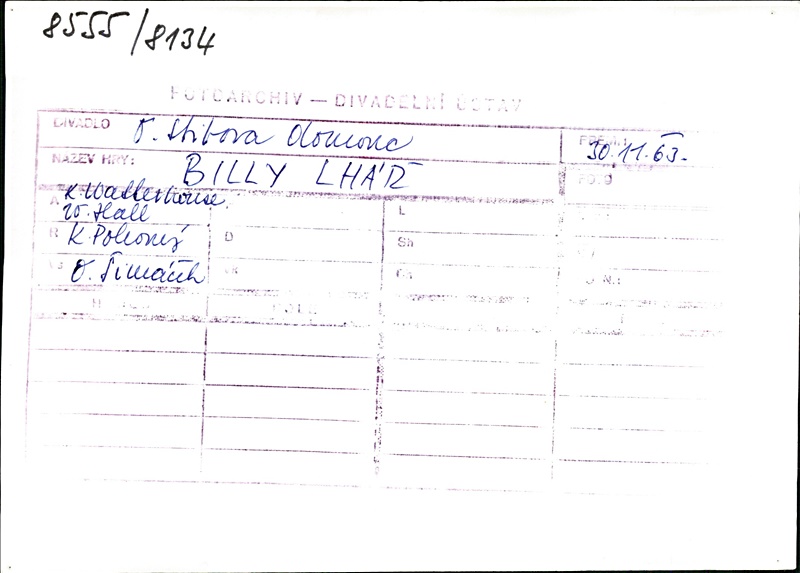 8555/8134
FOTOARCHIV — DIVADELNÍ ÚSTAV
DIVADLO O. Stibora Olomouc
PREM.: 30.11.63.
NÁZEV HRY: BILLY LHÁŘ
FOTO
A K Waterhouse
W. Hall
L
R K Pokorný
D
Sh
O. Šimáček
Č N.: